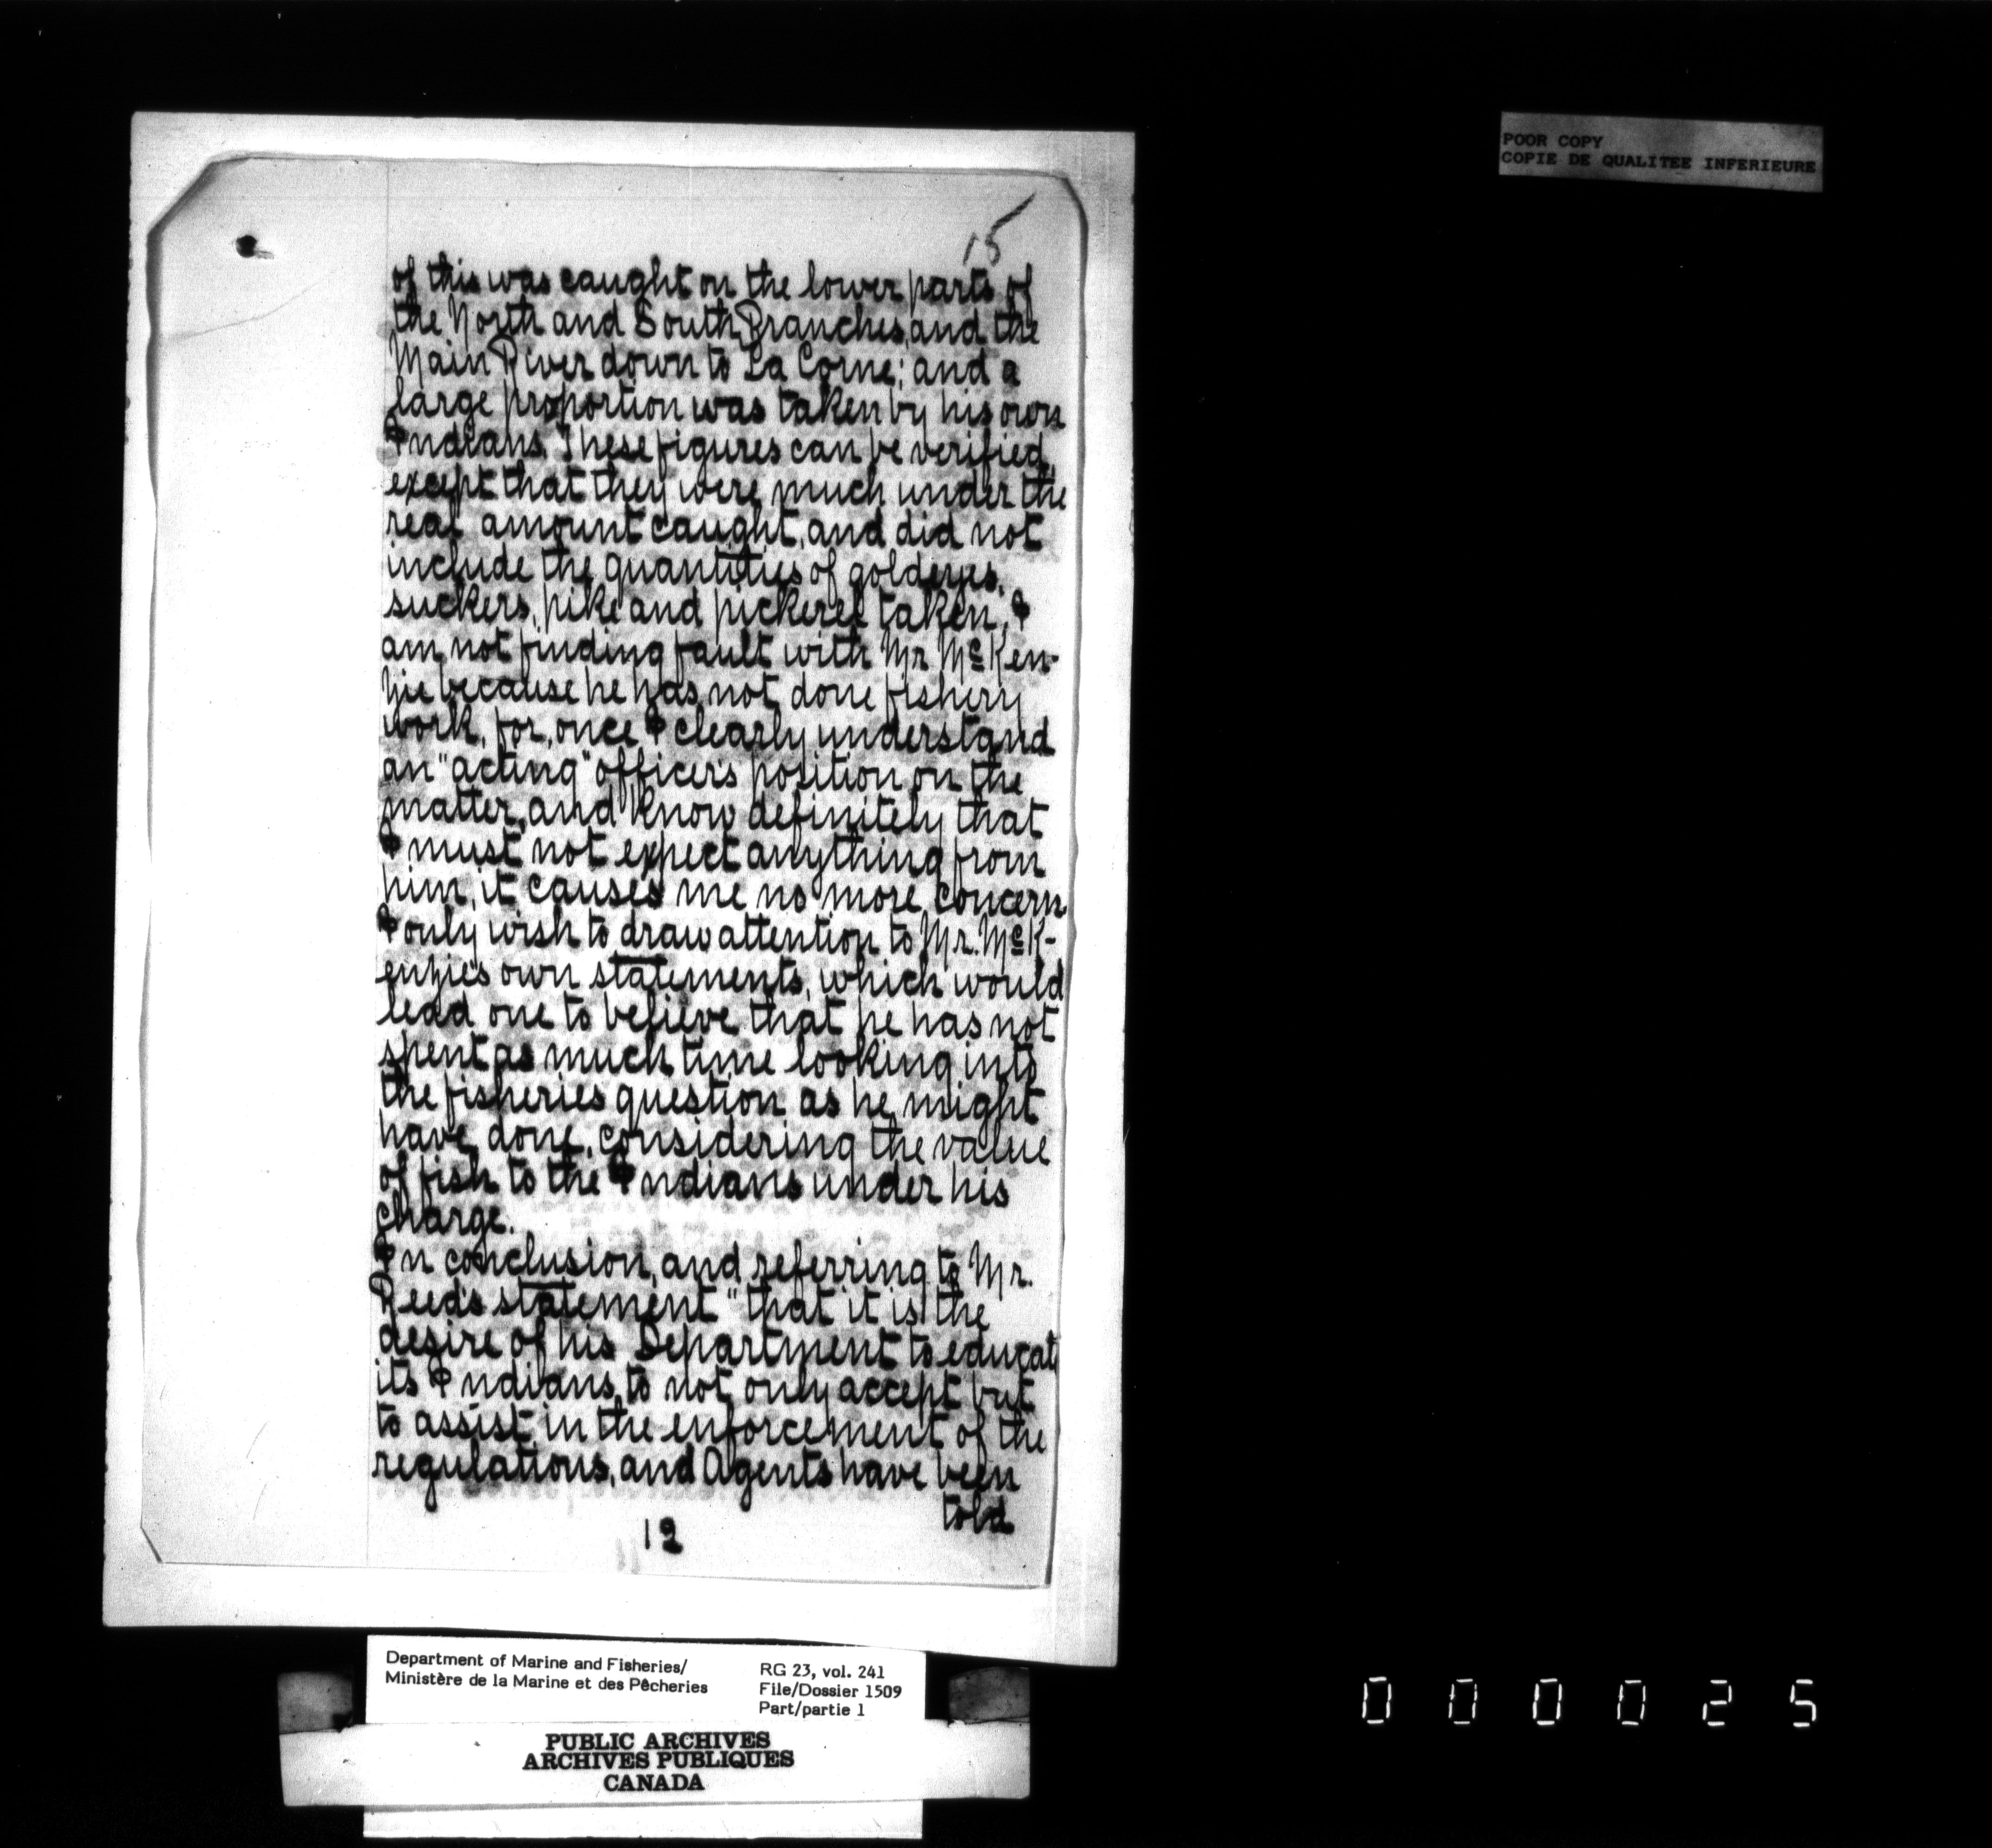 POOR COPY
COPIE DE QUALITEE INFERIEURE
15
of this was caught on the lower parts of
the North and South Branches, and the
Main River down to La Corne; and a
large proportion was taken by his own
Indians. These figures can be verified,
except that they were much under the
real amount caught, and did not
include the quantities of goldeyes,
suckers, pike and pickerel taken. I
am not finding fault with Mr McKen-
zie because he has not done fishery
work, for, once I clearly understand
an "acting" officer's position on the
matter, and know definitely that
I must not expect anything from
him, it causes me no more concern
I only wish to draw attention to Mr. McK-
enzie's own statements, which would
lead one to believe that he has not
spent as much time looking into
the fisheries question as he might
have done, considering the value
of fish to the Indians under his
charge.
In conclusion, and referring to Mr.
Reed's statement "that it is the
desire of his Department to educat
its Indians, to not only accept but
to assist in the enforcement of the
regulations, and Agents have been
told
12
Department of Marine and Fisheries/
Ministère de la Marine et des Pêcheries
RG 23, vol. 241
File/Dossier 1509
Part/partie 1
PUBLIC ARCHIVES
ARCHIVES PUBLIQUES
CANADA
000025